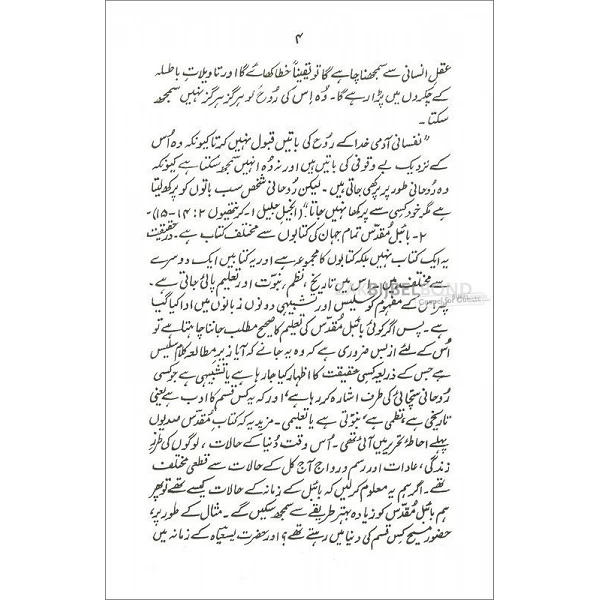 ۴
عقلِ انسانی سے سمجھنا چاہے گا تو یقیناً خطا کھائے گا اور تاویلاتِ باطلہ
کے چکروں میں پڑا رہے گا۔ وُہ اِس کی رُوح کو ہرگز ہرگز نہیں سمجھ
سکتا۔
"نفسانی آدمی خدا کے رُوح کی باتیں قبول نہیں کرتا کیونکہ وہ اُس
کے نزدیک بے وقوفی کی باتیں ہیں اور نہ وُہ اُنہیں سمجھ سکتا ہے کیونکہ
وہ رُوحانی طور پر پرکھی جاتی ہیں۔ لیکن رُوحانی شخص سب باتوں کو پرکھ لیتا
ہے مگر خود کسی سے پرکھا نہیں جاتا" (انجیل جلیل ۱۔کرنتھیوں ۲: ۱۴-۱۵)۔
۲۔ بائبل مُقدّس تمام جہان کی کتابوں سے مختلف کتاب ہے۔ درحقیقت
یہ ایک کتاب نہیں بلکہ کتابوں کا مجموعہ ہے اور یہ کتابیں ایک دوسرے
سے مختلف ہیں۔ اِس میں تاریخ، نظم، نبوّت اور تعلیم پائی جاتی ہے۔
BIJBELBOND
پھر اس کے مفہوم کو سلیس اور تشبیہی دونوں زبانوں میں ادا کیا گیا
ہے۔ پس اگر کوئی بائبل مُقدّس کی تعلیم کا صحیح مطلب جاننا چاہتا ہے تو
اُس کے لئے ازبس ضروری ہے کہ وہ یہ جانے کہ آیا زیرِ مطالعہ کلام سلیس
ہے جس کے ذریعہ کسی حقیقت کا اظہار کیا جا رہا ہے یا تشبیہی ہے جو کسی
رُوحانی سچّائی کی طرف اشارہ کر رہا ہے، اور کہ یہ کس قسم کا ادب ہے یعنی
تاریخی ہے، نظمی ہے، نبوّتی ہے یا تعلیمی۔ مزید یہ کہ کتابِ مُقدّس صدیوں
پہلے احاطۂ تحریر میں آئی تھی۔ اُس وقت دُنیا کے حالات، لوگوں کی طرزِ
زندگی، عادات اور رسم و رواج آج کل کے حالات سے قطعی مختلف
تھے۔ اگر ہم یہ معلوم کر لیں کہ بائبل کے زمانہ کے حالات کیسے تھے تو پھر
ہم بائبل مُقدّس کو زیادہ بہتر طریقے سے سمجھ سکیں گے۔ مثال کے طور پر،
حضور مسیح کِس قسم کی دنیا میں رہتے تھے؟ اور حضرت یسعیاہ کے زمانہ میں